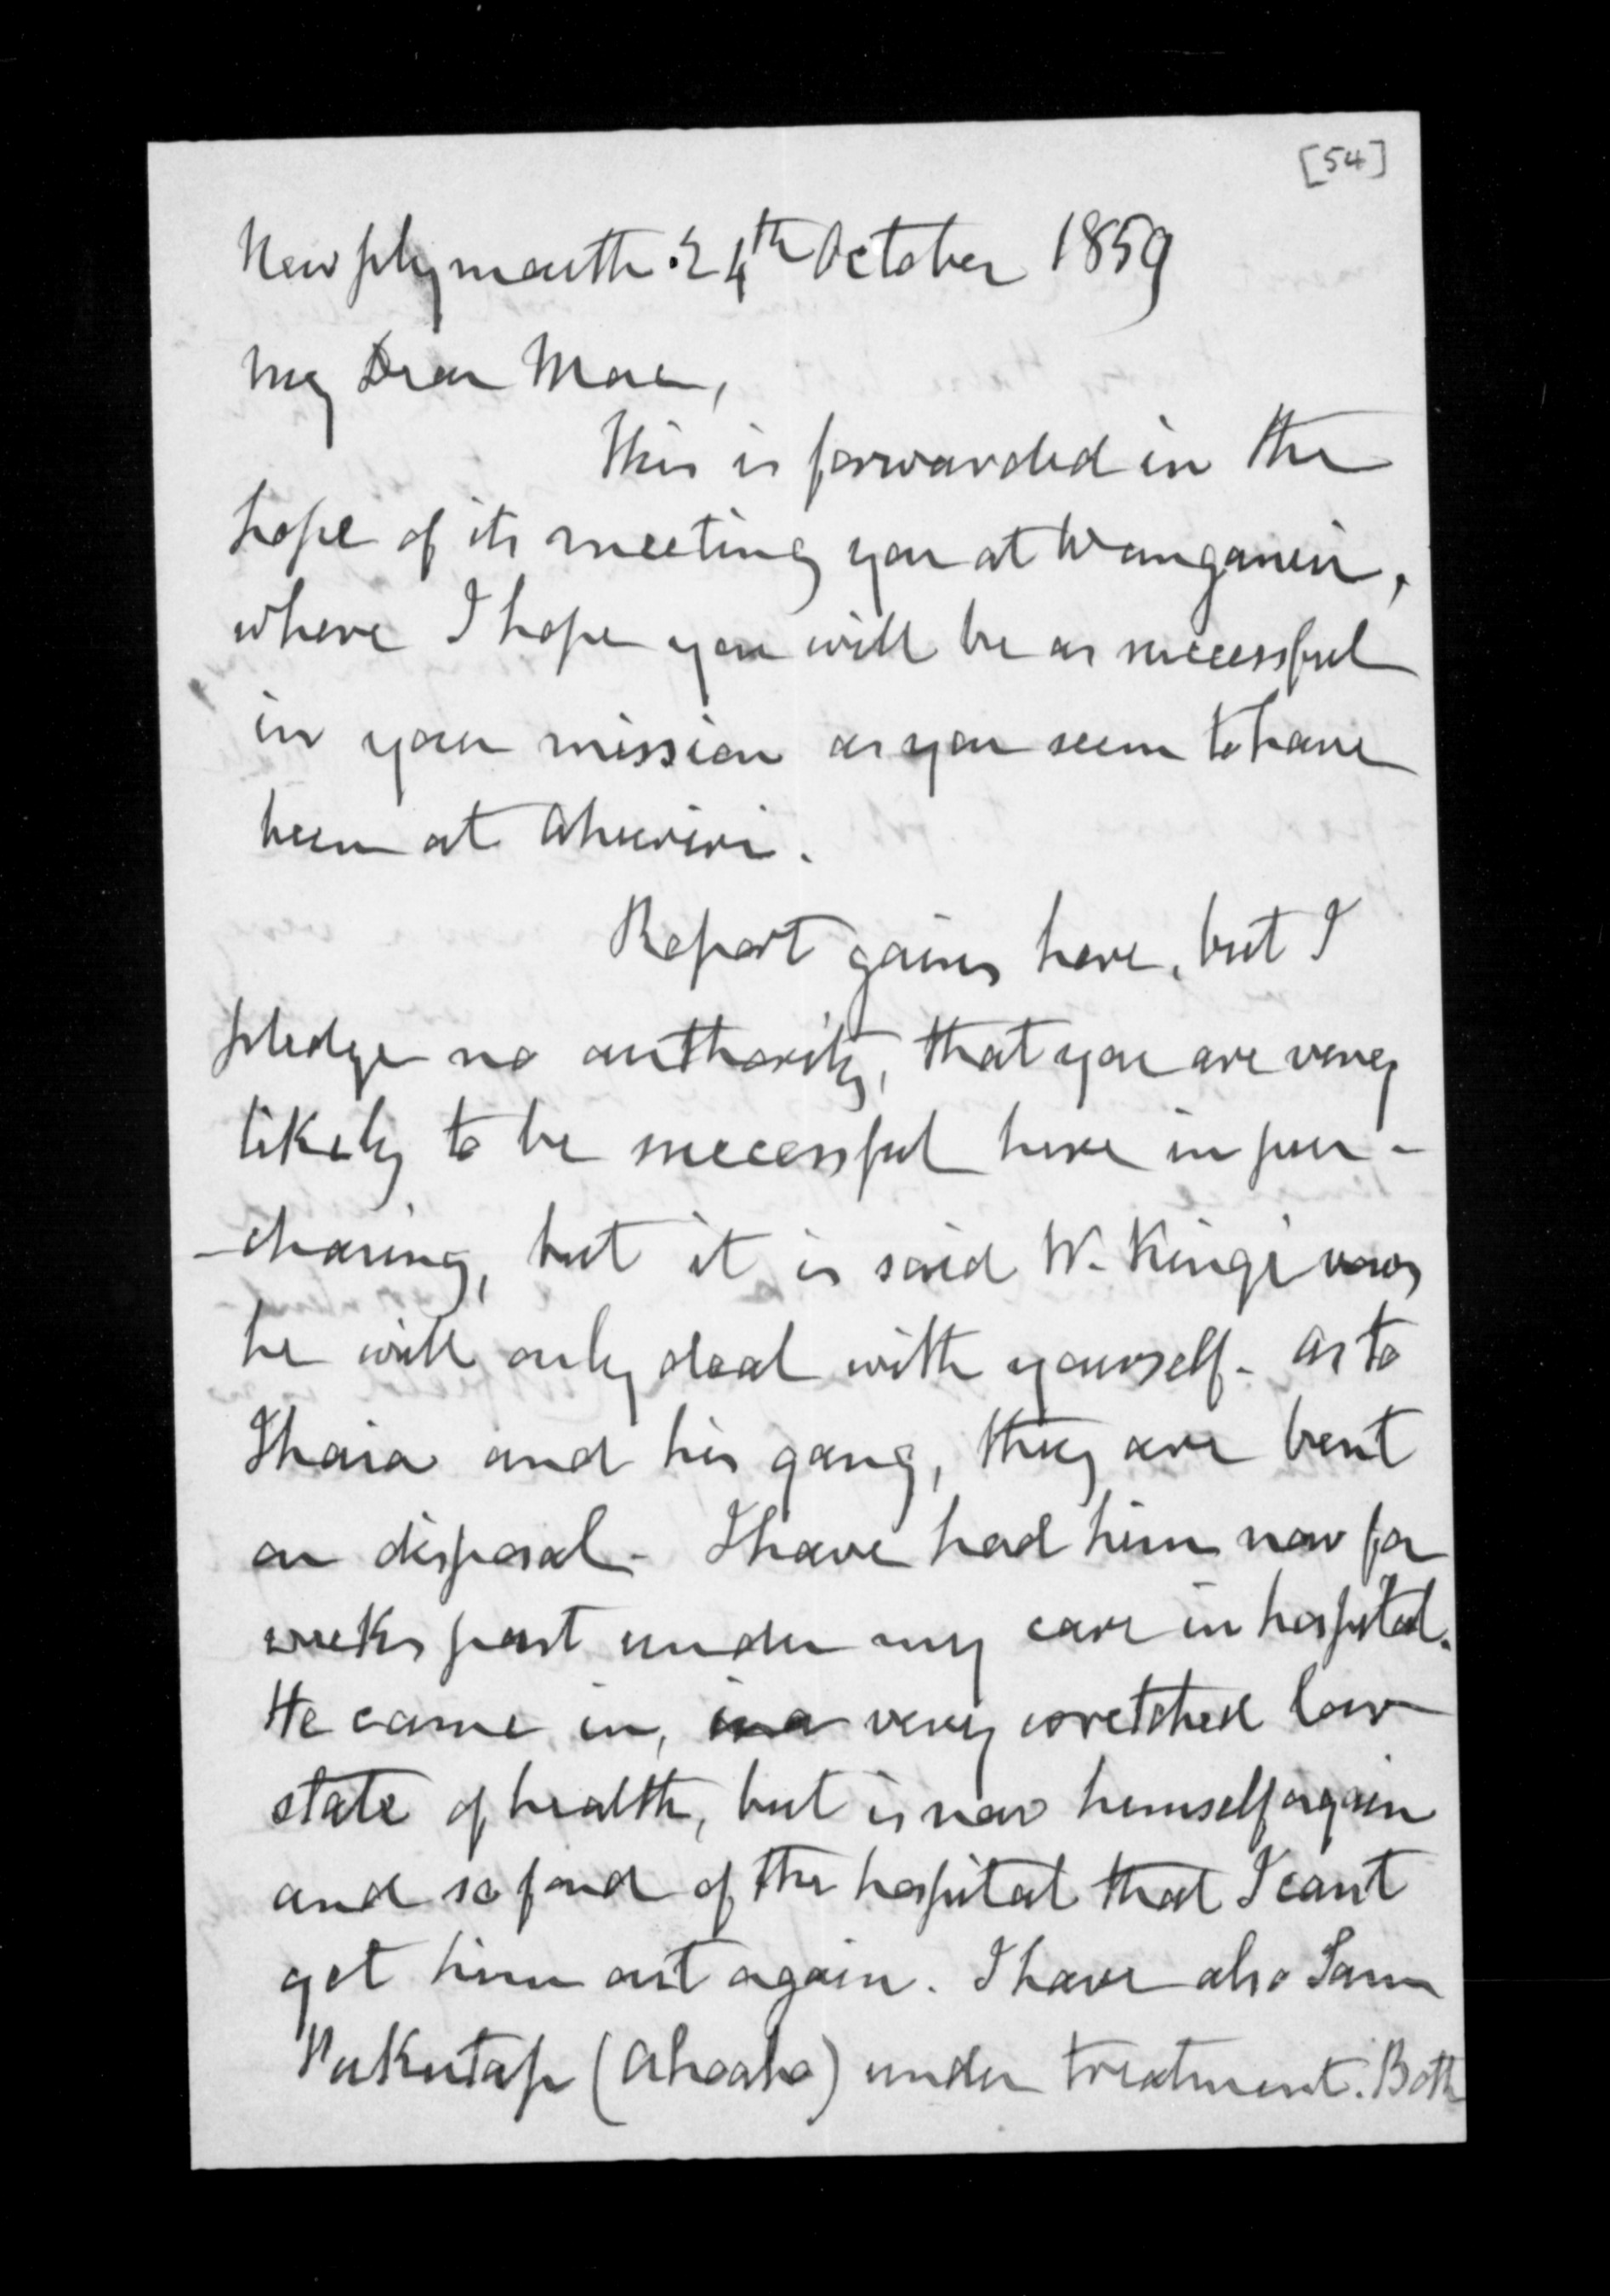 [54]
New Plymouth 24th October 1859
My Dear Mac,
This is forwarded in the
hope of its meeting you at Wanganui,
where I hope you will be as successful
in your mission as you seem to have
been at Ahuriri.
Report gains here, but I
pledge no authority, that you are very
likely to be successful here in pur-
-chasing, but it is said W. Kingi vows
he will only deal with yourself - as to
Ihaia and his gang, they are bent
on disposal - I have had him now for
weeks past under my care in hospital.
He came in, in a very wretched low
state of health, but is now himself again
and so fond of the hospital that I cant
get him out again. I have also Sam
(Ahoaho) under treatment. Both